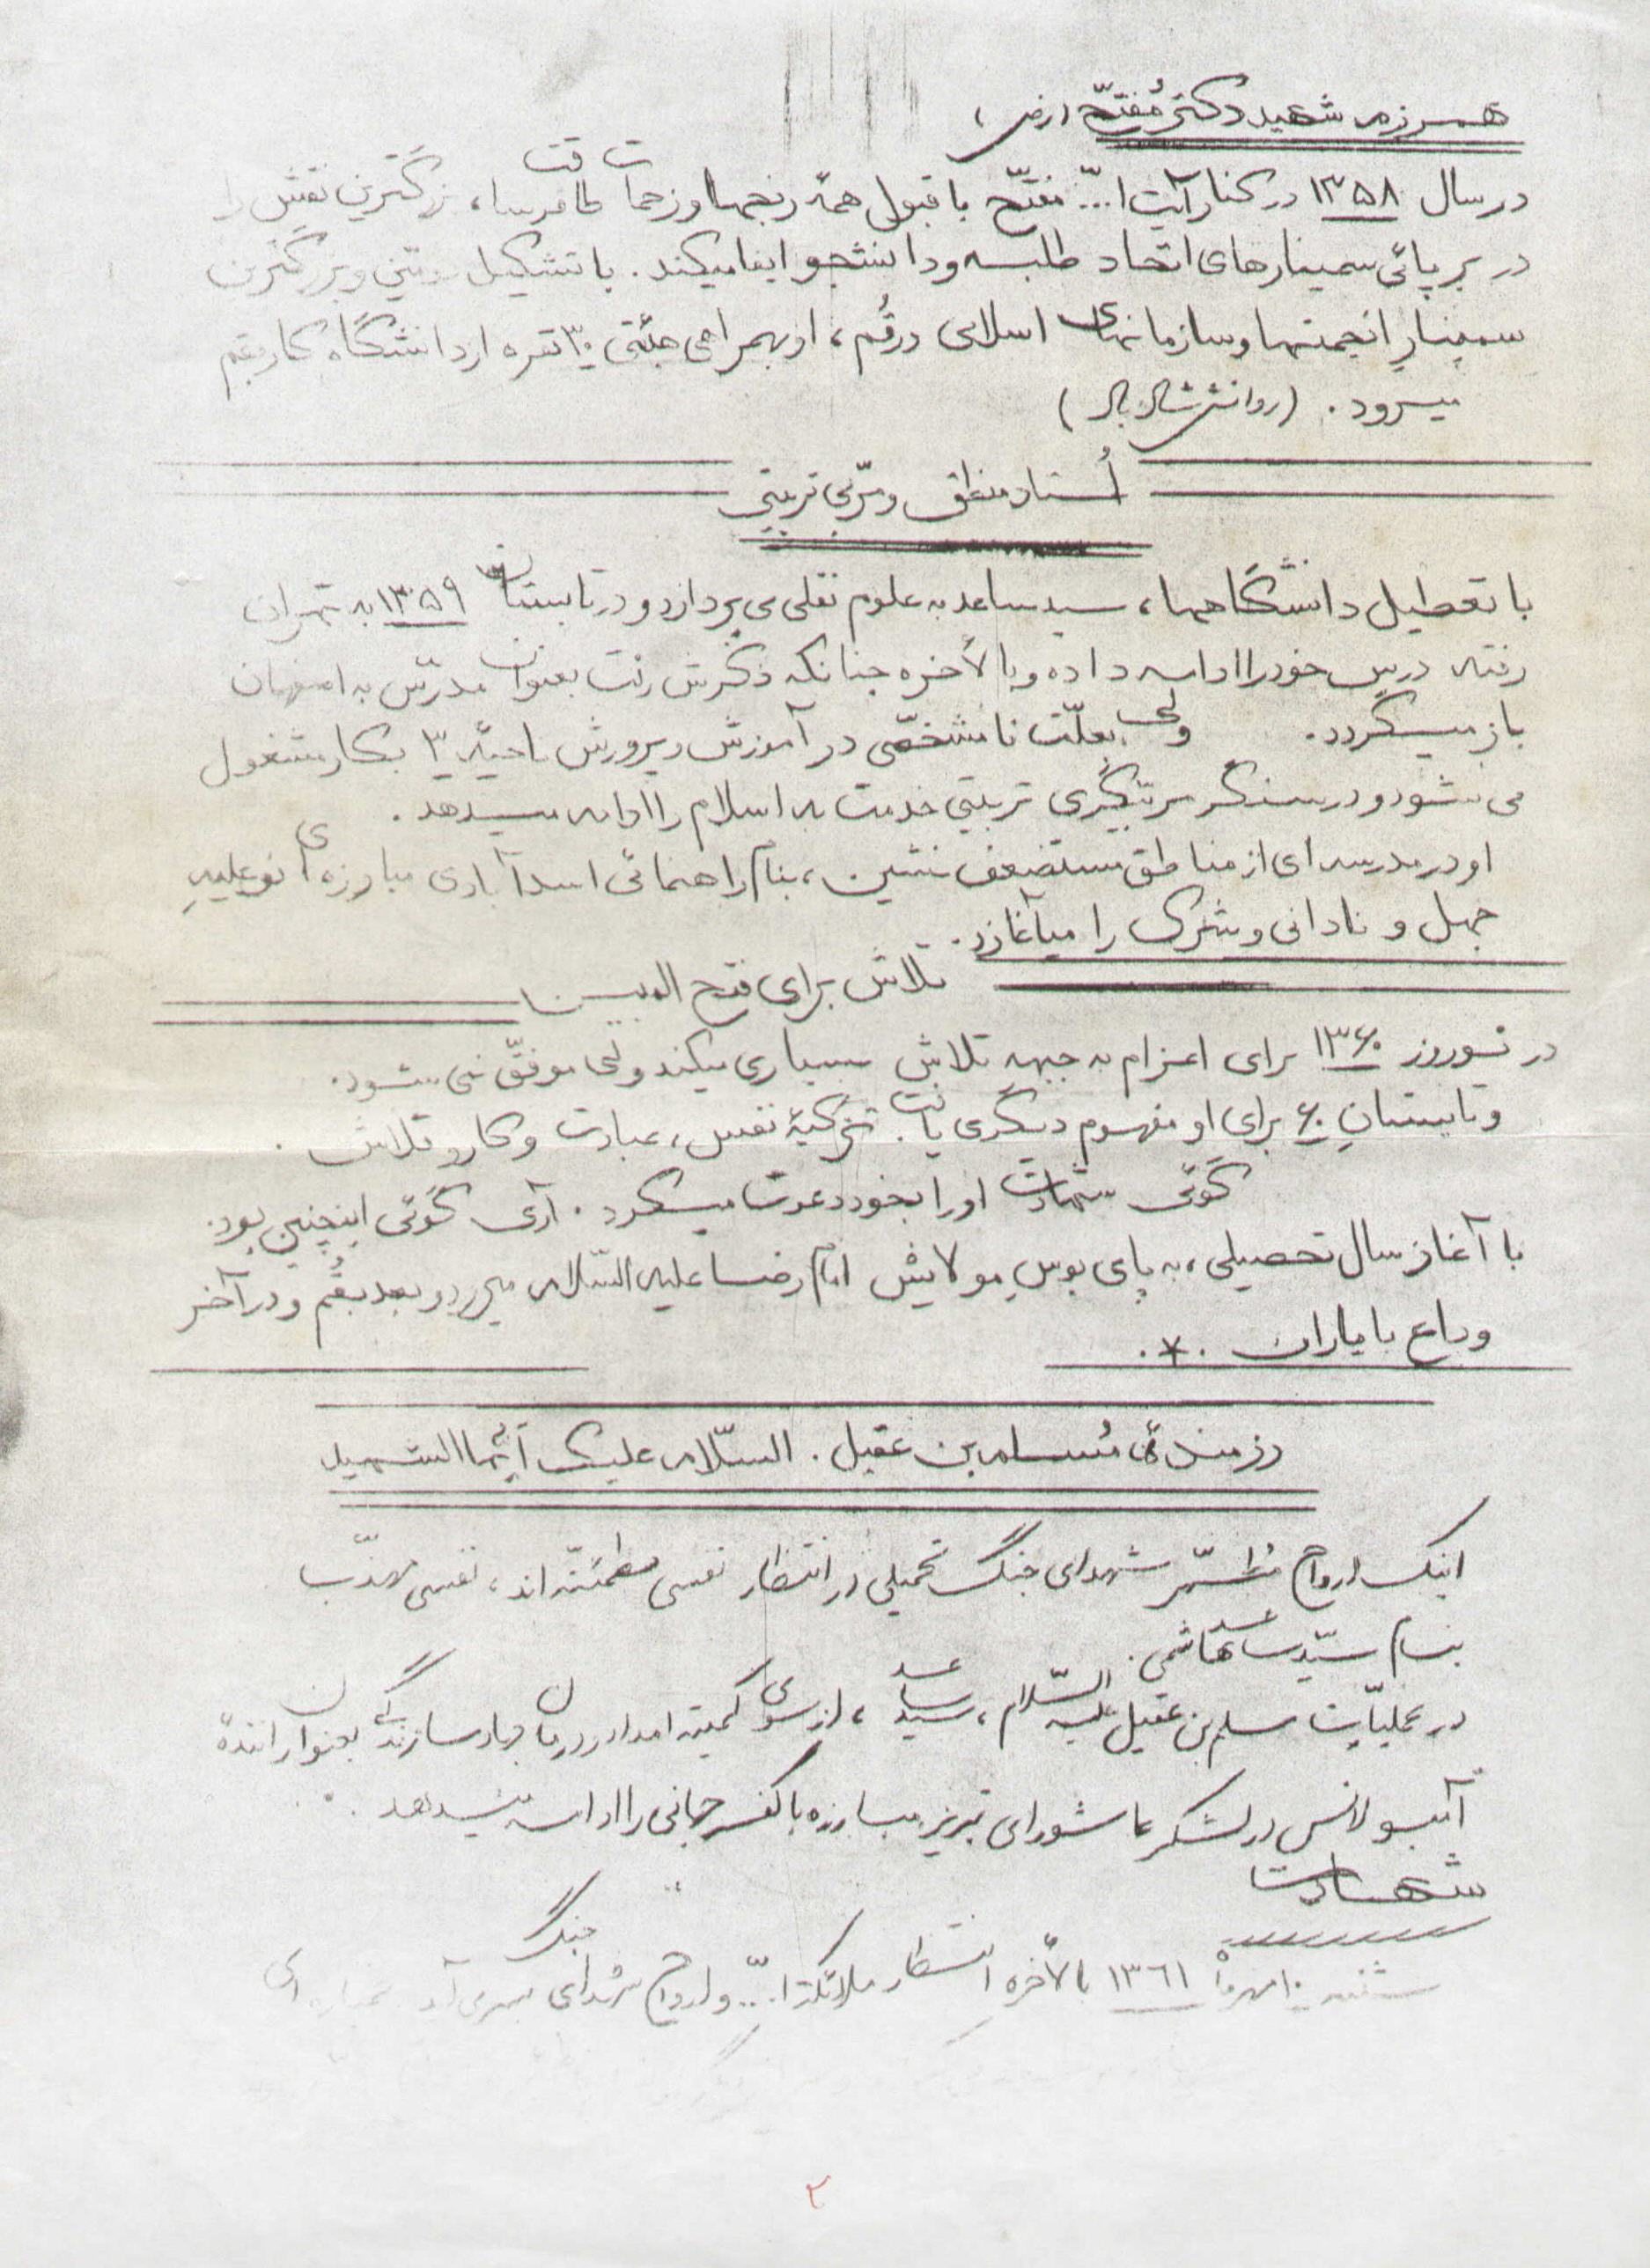 همرزم شهید دکتر مُفتّح (رض)
در سال ۱۳۵۸ در کنار آیت ا... مفتّح با قبول همهٔ رنجها و زحمات طاقت فرسا، بزرگترین نقش را
در برپائی سمینارهای اتحاد طلبه و دانشجو ایفا میکند. با تشکیل دوّمین و بزرگترین
سمینارِ انجمنها و سازمانهای اسلامی در قُم، او بهمراهی هیئتی ۳۰ نفره از دانشگاه کار بقم
میرود. (روانش شاد باد)
اُستاد منطق و مربّی تربیتی
با تعطیل دانشگاهها، سید ساعد به علوم نقلی می پردازد و در تابستان ۱۳۵۹ به تهران
رفته درس خود را ادامه داده و بالأخره چنانکه ذکرش رفت بعنوان مدرّس به اصفهان
باز میگردد. ولی بعلّت نامشخصّی در آموزش و پرورش ناحیهٔ ۳ بکار مشغول
می شود و در سنگر مربّیگری تربیتی خدمت به اسلام را ادامه میدهد.
او در مدرسه ای از مناطق مستضعف نشین، بنام راهنمائی اسدآبادی مبارزه ای نو علیهِ
جهل و نادانی و شرک را میآغازد.
تلاش برای فتح المبین
در نوروز ۱۳۶۰ برای اعزام به جبهه تلاش بسیاری میکند ولی موفقّ نمی شود.
و تابستانِ ۶۰ برای او مفهوم دیگری یافت. تزکیهٔ نفس، عبادت و کار و تلاش.
گوئی شهادت او را بخود دعوت میکرد. آری گوئی اینچنین بود.
با آغاز سال تحصیلی، به پای بوسِ مولایش امام رضا علیه السّلام میرود و بعد بقُم و در آخر
وداع با یاران .*.
رزمندهٔ مُسلم بن عقیل. السّلام علیک اَیُّها الشهید
اینک ارواح مُطهّر شهدای جنگ تحمیلی در انتظار نفسی مطمئنّه اند، نفسی مهذّب
بنام سیّد ساعد هاشمی.
در عملیّات مسلم بن عقیل علیه السّلام، سید ساعد، از سوی کمیته امداد و درمان جهاد سازندگی بعنوان رانندهٔ
آمبولانس در لشکر عاشورای تبریز مبارزه با کفر جهانی را ادامه میدهد.
شهادت
شنبه ۱۰ مهرماه ۱۳۶۱ بالأخره انتظار ملائکة ا... و ارواح شهدای جنگ بسر می آید
۲